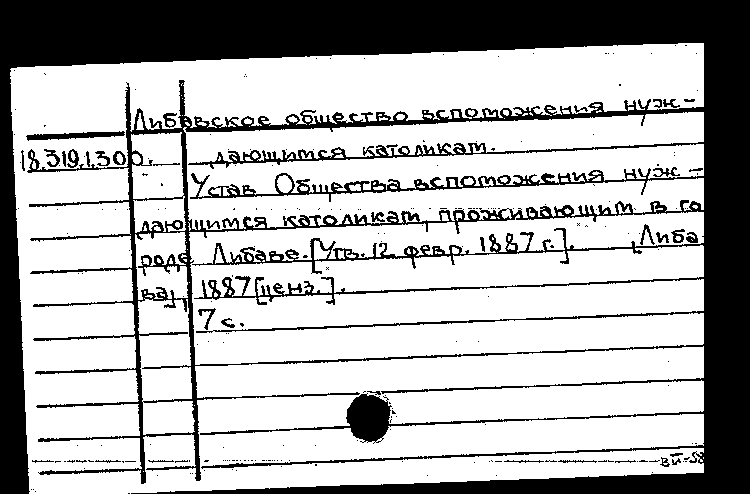 Либавское общество вспоможения нуж-
18.319.1.300. дающимся католикам.
Устав Общества вспоможения нуж-
дающимся католикам, проживающим в го
роде Либаве. [Утв. 12 февр. 1887 г.]. [Либа
ва], 1887 [ценз.].
7 с.